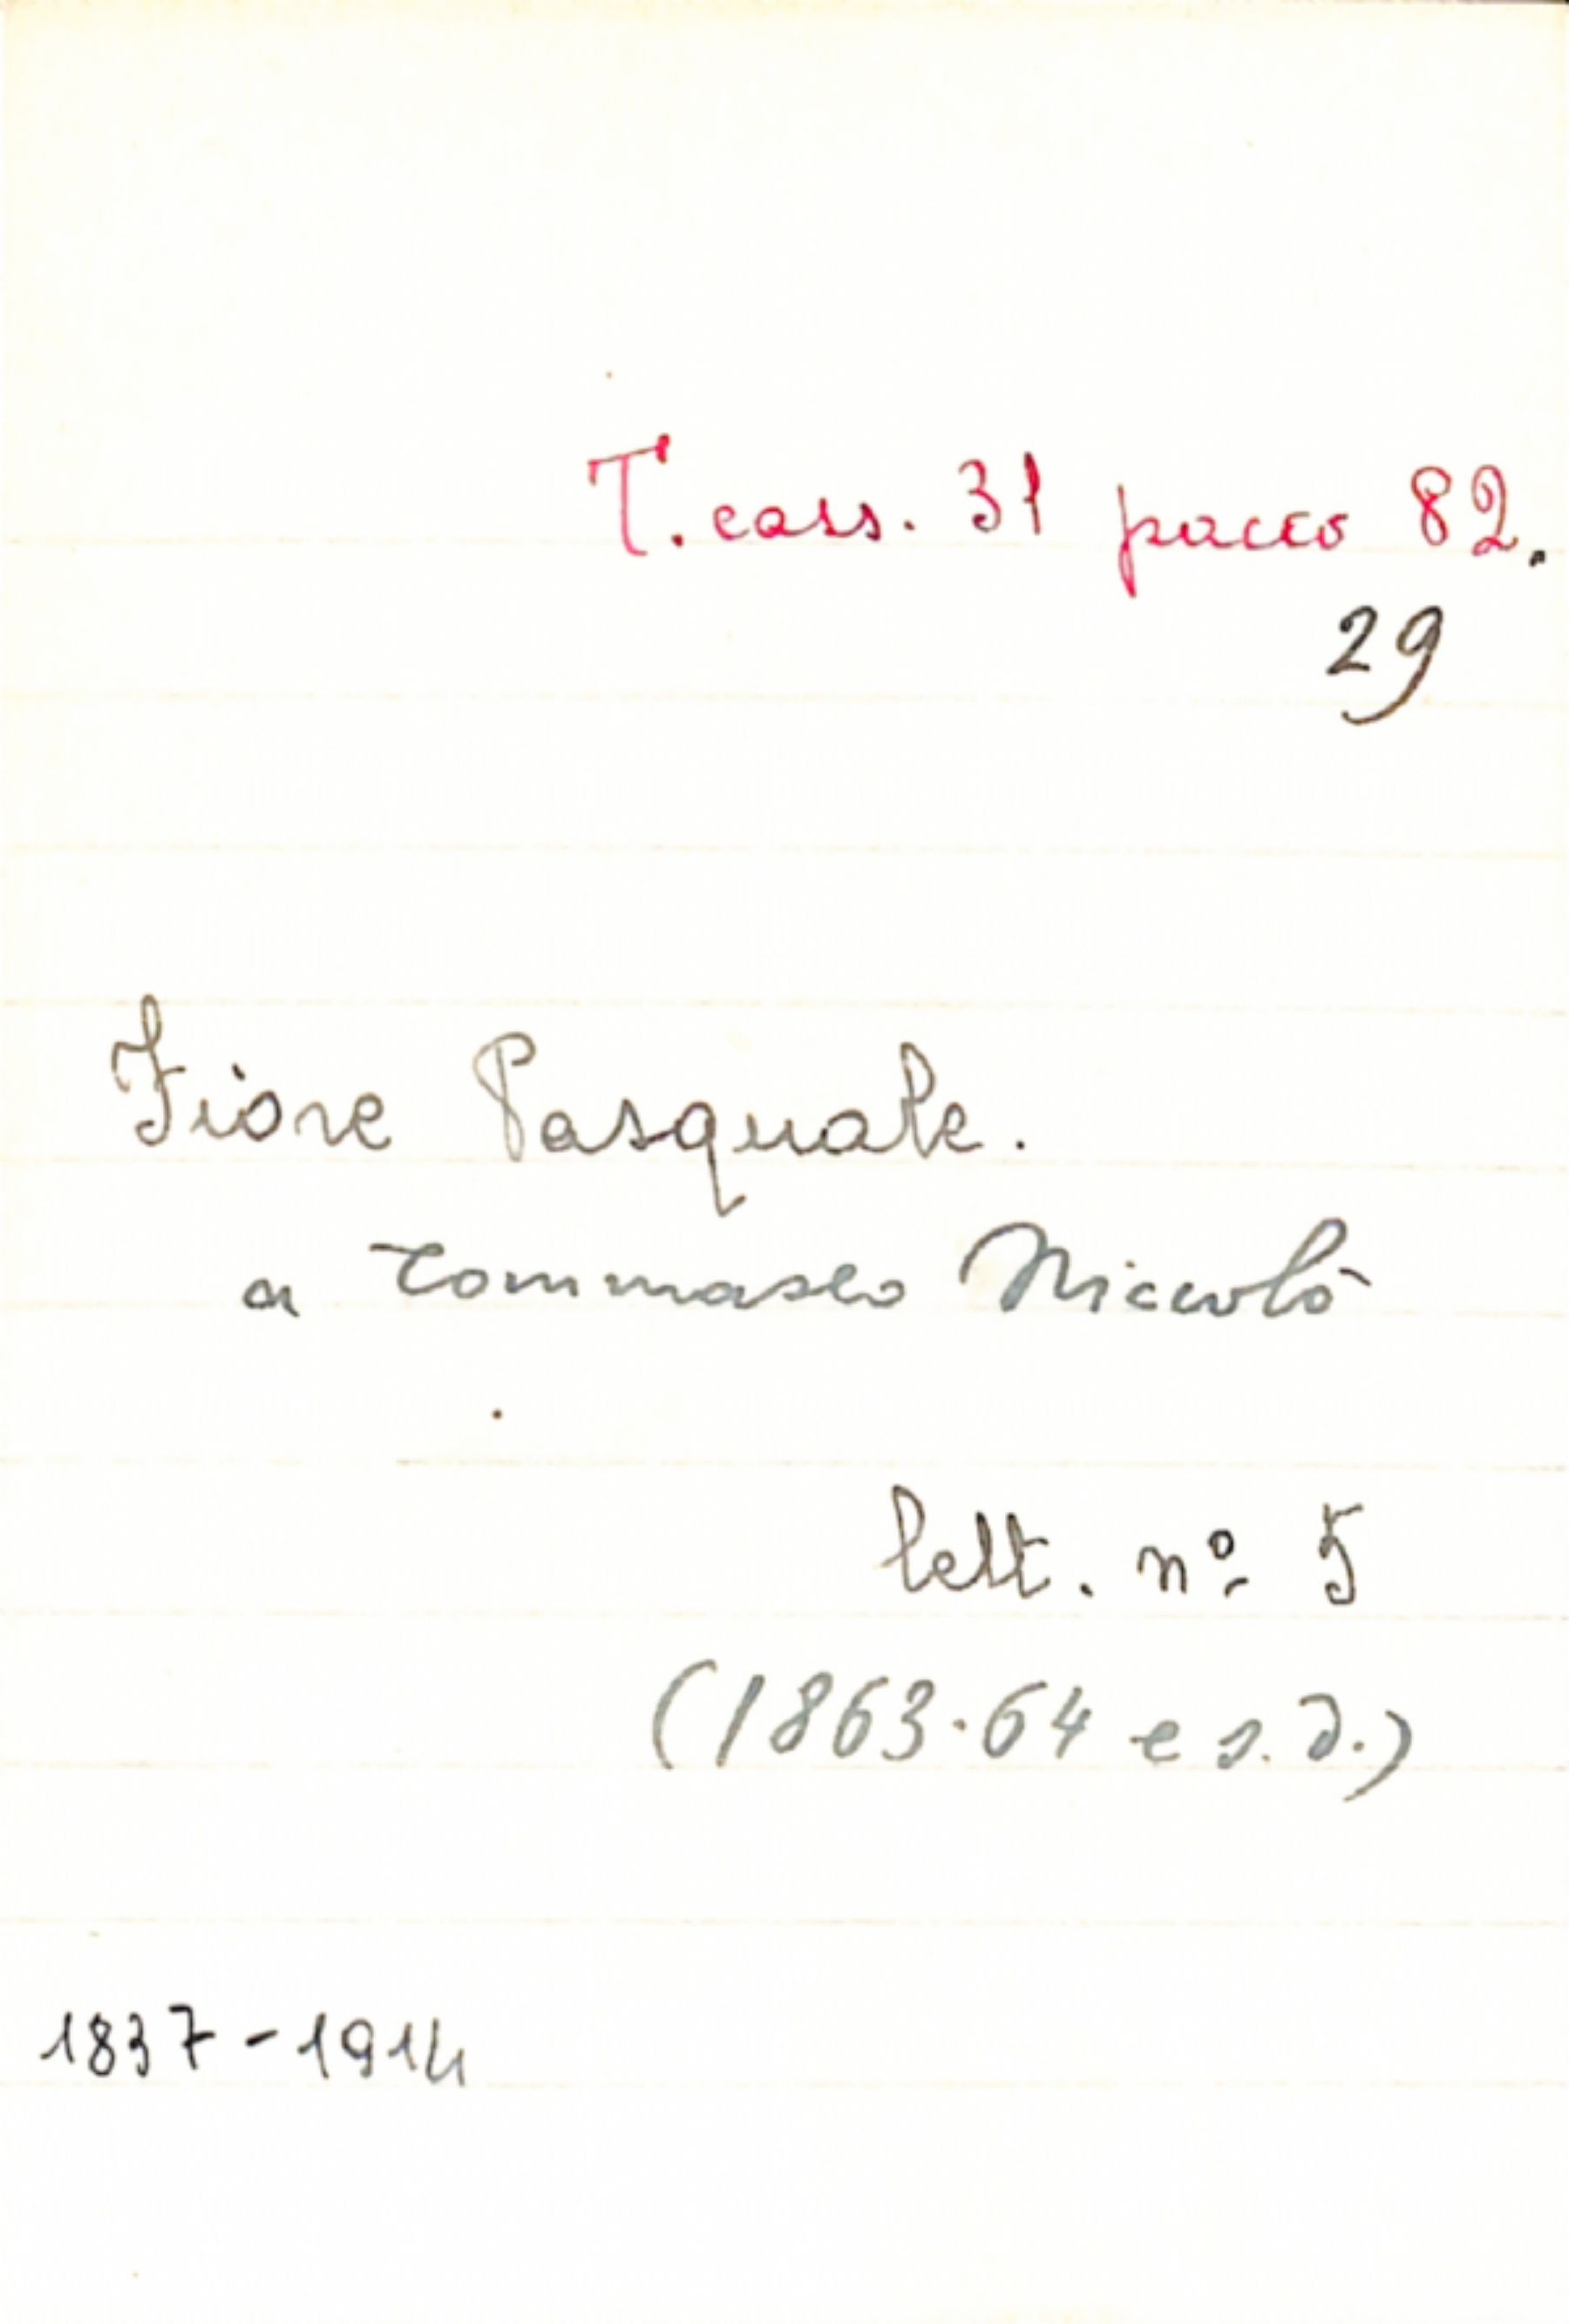 T. cass. 31 pacco 82.
29
Fiore Pasquale.
a Tommaseo Niccolò
lett. nº 5
(1863-64 e s. d.)
1837-1914